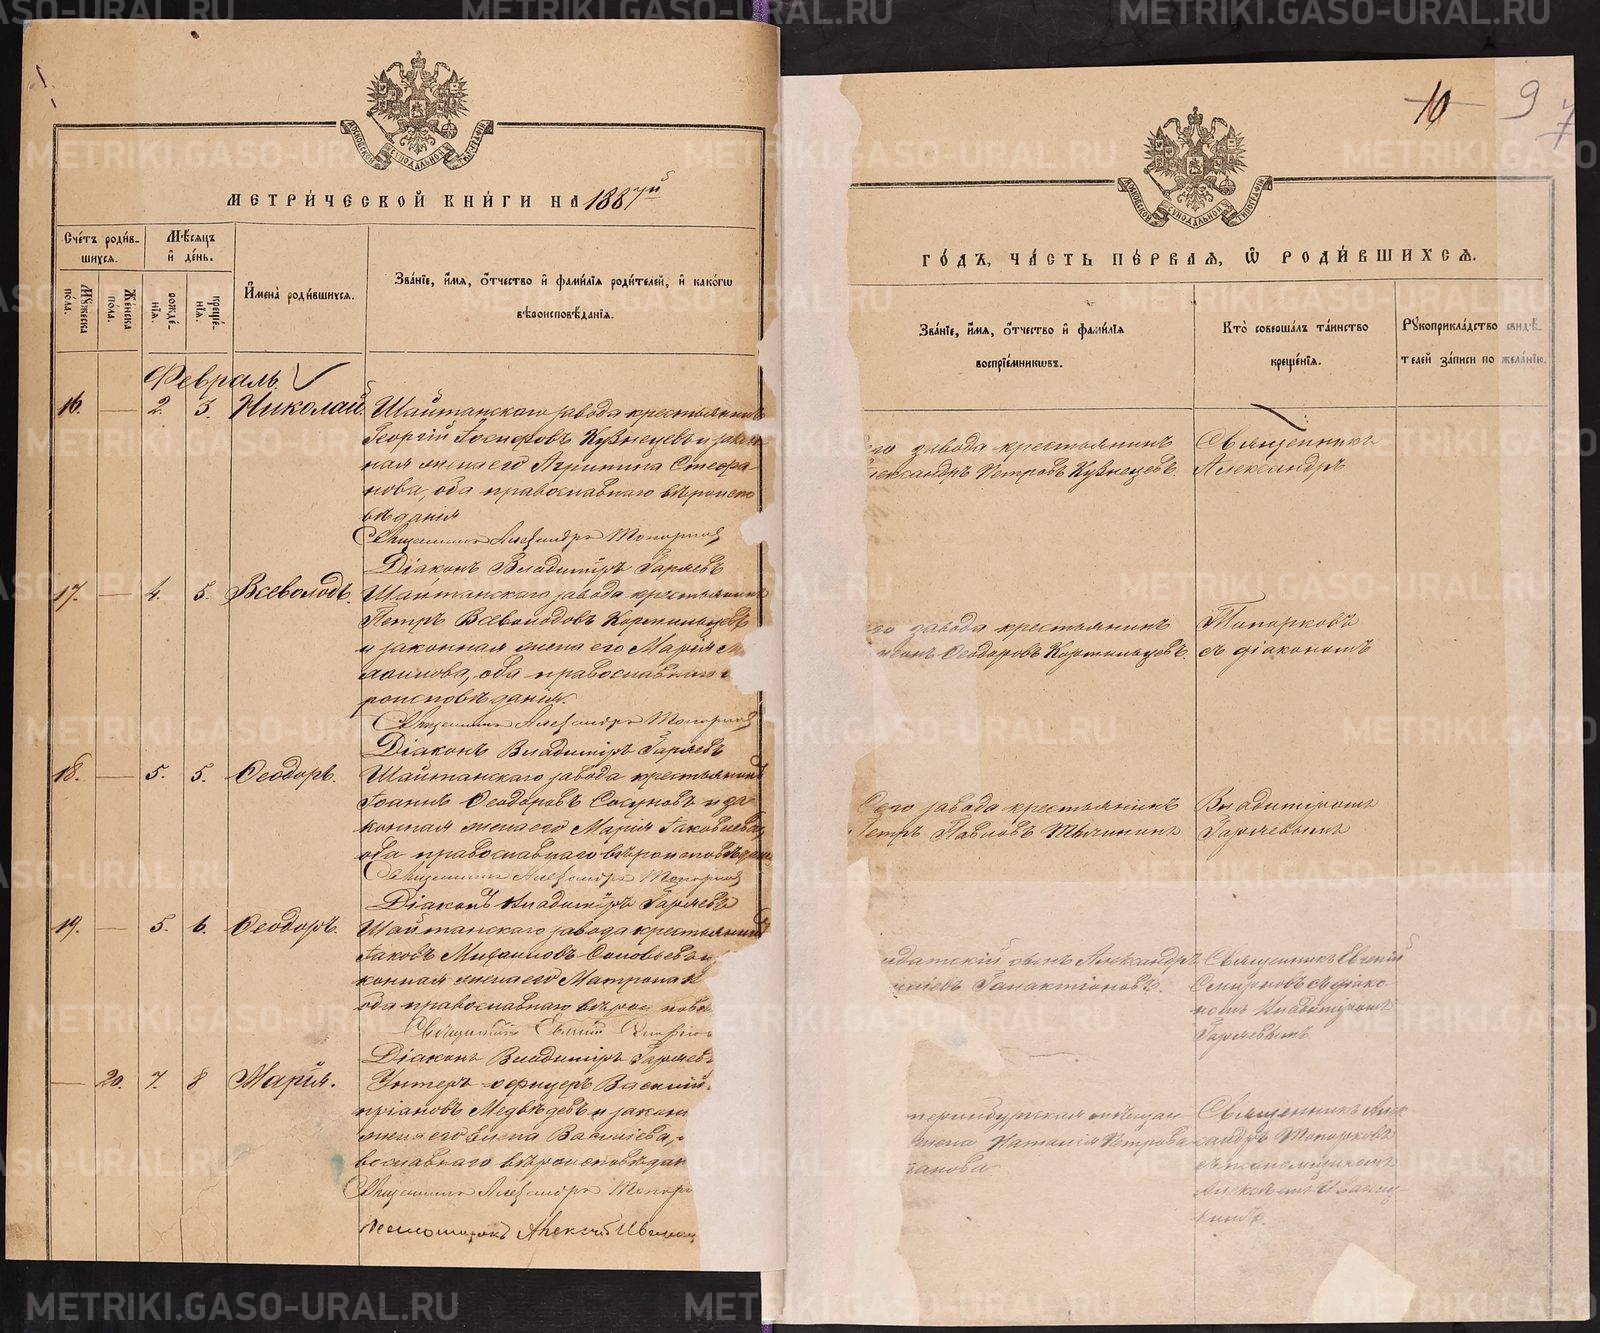 METRIKI.GASO-URAL.RU
МЕТРИ́ЧЕСКОЙ КНИ́ГИ НА 1887й
Сче́тъ роди́в-
шихся.
Мѣ́сяцъ
и҆ де́нь.
И҆мена̀ роди́вшихся.
Зва́нїе, и҆́мя, ѻ҆́тчество и҆ фами́лїя роди́телей, и҆ како́гѡ
вѣроисповѣ́данїя.
Мꙋжеска по́ла.
Же́нска по́ла.
рожде́-нїя.
креще́-нїя.
Февраль.
16. — 2. 3. Николай
Шайтанскаго завода крестьянинъ
Георгій Іосифовъ Кузнецовъ и закон
ная жена его Агрипина Стефа-
нова, оба православнаго вѣроиспо
вѣданія
Священникъ Александръ Топорков
Діаконъ Владиміръ Гаряевъ
17. — 4. 5. Всеволодъ.
Шайтанскаго завода крестьянинъ
Петръ Всеволодовъ Кормильцевъ
и законная жена его Марія М
оба православнаго
роисповѣданія.
Священникъ Александръ Топорков
Діаконъ Владиміръ Гаряевъ
18. — 5. 5. Ѳеодоръ.
Шайтанскаго завода крестьянинъ
Іоаннъ Ѳеодоровъ Сосуновъ и за
конная жена его Марія Іаковлева
оба православнаго вѣроисповѣдан
Священникъ Александръ Топорков
Діаконъ Владиміръ Гаряевъ
19. — 5. 6. Ѳеодоръ.
Шайтанскаго завода крестьянинъ
Іаковъ Михаиловъ Соловьевъ и
конная жена его Матрона
оба православнаго вѣроисповѣ
Священникъ Евгеній
Діаконъ Владиміръ Гаряевъ
— 20. 7. 8 Марія.
Унтеръ-офицеръ Василій
пріановъ Медвѣдевъ и закон
жена его Елена Васильева,
вославнаго вѣроисповѣдан
Священникъ Александръ Топорк
Псаломщикъ Алексѣй Иван
10 9 7
ГО́ДЪ, ЧА́СТЬ ПЕ́РВАЯ, Ѡ҆ РОДИ́ВШИХСЯ.
Зва́нїе, и҆́мя, ѻ҆́тчество и҆ фами́лїя
воспрїе́мникѡвъ.
Кто̀ соверша́лъ та́инство
креще́нїя.
Рꙋкоприкла́дство свидѣ́
телей за́писи по жела́нїю.
его завода крестьянинъ
лександръ Петровъ Кузнецовъ.
Священникъ
Александръ
го завода крестьянинъ
Ѳеодоровъ Кормильцевъ.
Топорковъ
съ діакономъ
Сего завода крестьянинъ
Петръ Павловъ
Владиміромъ
Гаряевымъ
лдатскій сынъ Александръ
Галактіоновъ.
Священникъ Евгеній
Смирновъ съ діако-
номъ Владиміромъ
Гаряевымъ.
мѣщан-
жена Наталія Петрова
Священникъ Алек
сандръ Топорковъ
съ псаломщикомъ